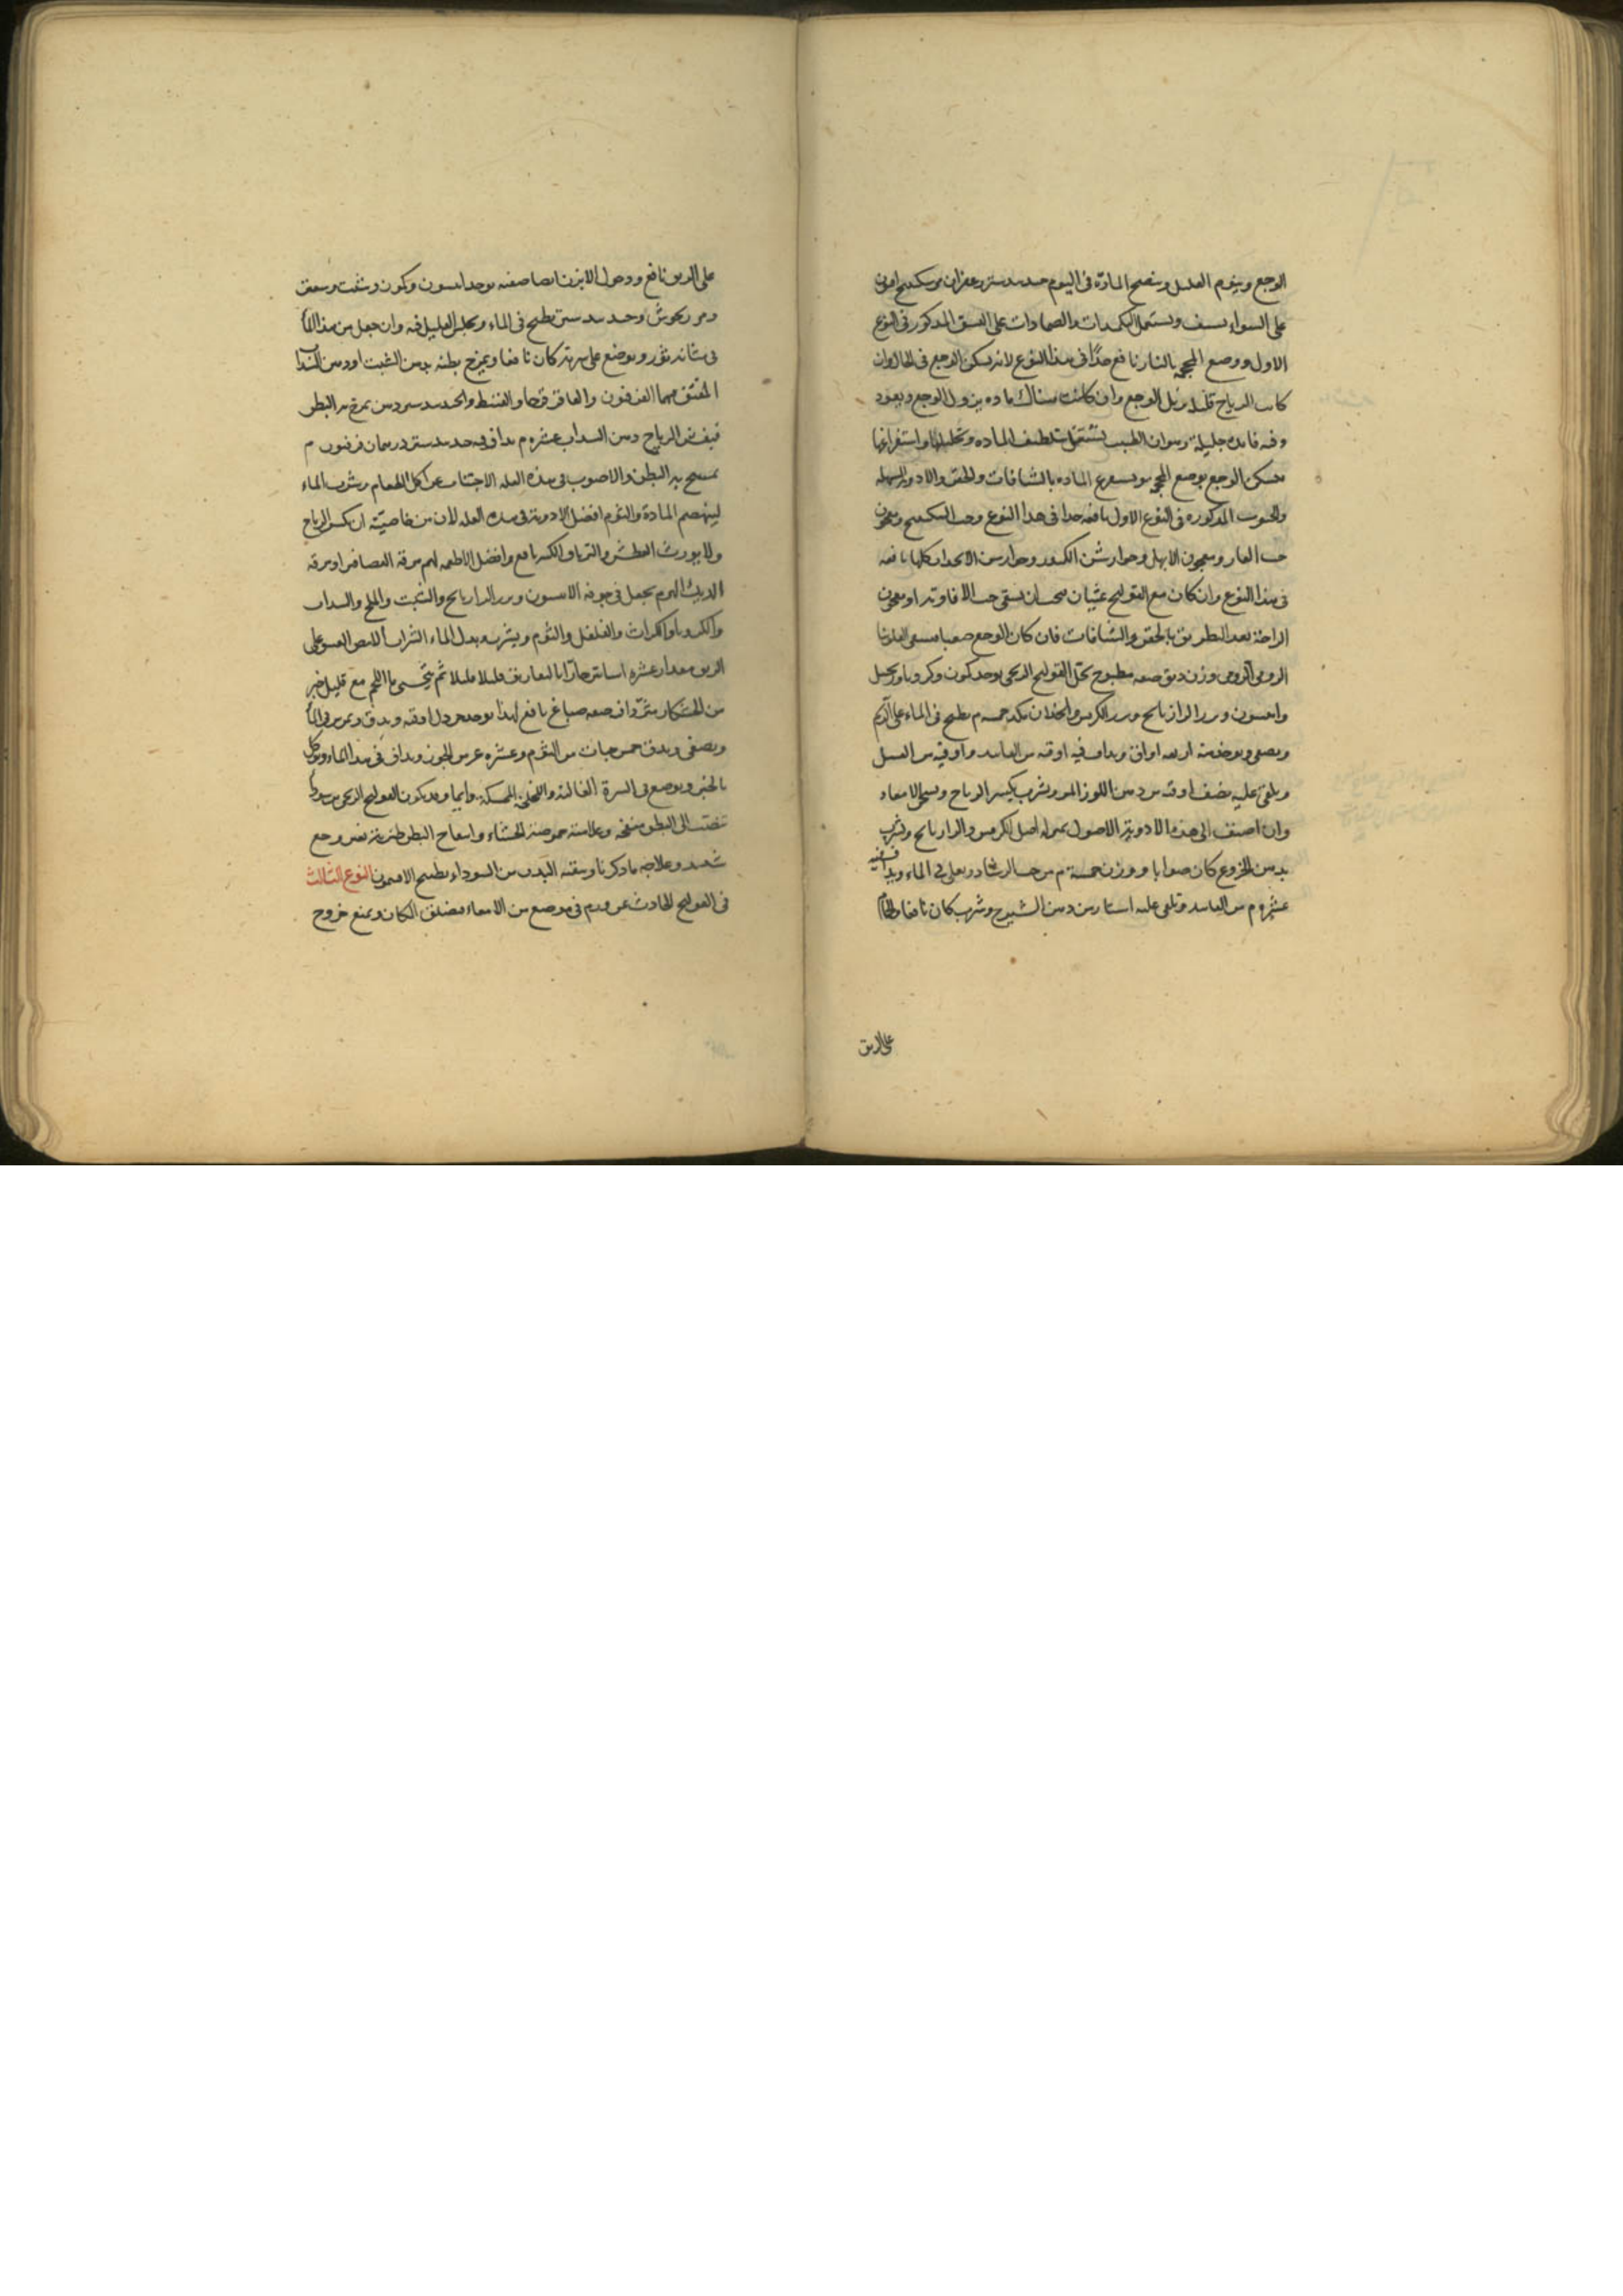 الوجع وينوم العليل وينضج المادة في اليوم جندبيدستر زعفران مر سكبينج افيون
على السواء يسف ويستعمل الكمدات والضمادات على النسق المذكور في النوع
الاول ووضع المحجمة بالنار نافع جدا في هذا النوع لانه يسكن الوجع في الحال وان
كانت الرياح قليلة يزيل الوجع وان كانت هناك مادة يزول الوجع ويعود
وفيه فائدة جليلة وهو ان الطبيب يشتغل بتلطيف المادة وتحليلها واستفراغها
فيسكن الوجع بوضع المحجمة ويستفرغ المادة بالشيافات والحقن والادوية المسهلة
والحبوب المذكورة في النوع الاول نافعة جدا في هذا النوع وحب السكبينج ومعجون
حب الغار ومعجون الابهل وجوارشن الكندر وجوارشن الانجدان كلها نافعة
في هذا النوع وان كان مع القولنج غثيان يسقى حب الافاويه او معجون
الراحة بعد التطريق بالحقن والشيافات فان كان الوجع صعبا فيسقى الفلونيا
الرومي وزن دنق صفة مطبوخ يحل القولنج الريحي يوخذ كمون وكرويا وزنجبيل
وانيسون وبزر الرازيانج وبزر الكرفس والحلبة خمسة م يطبخ في الماء على الرسم
ويصفى ويوخذ منه اربعة اواق ويداف فيه اوقية من الفانيد واوقية من العسل
ويلقى عليه نصف اوقية من دهن اللوز المر ويشرب يكسر الرياح ويسخن الامعاء
وان اضيف الى هذه الادوية الاصول بمثل اصل الكرفس والرازيانج ويشرب
بدهن الخروع كان صوابا ووزن خمسة م من حب الرشاد ويغلى في الماء ويداف فيه
عشرة م من الفانيد ويلقى عليه استارين دهن الشيرج وشرب كان نافعا
على الريق
على الريق نافع ودخول الابزن ايضا صفته يوخذ انيسون وكمون وشبت وسعتر
ومرزنجوش وجندبيدستر يطبخ في الماء ويجلس العليل فيه وان جعل من هذا الماء
في مثانة ثور ويوضع على سرته كان نافعا ويمرخ بطنه بدهن الشبت او دهن السذاب
المفتق فيهما الفرفيون والعاقرقرحا والقسط والجندبيدستر دهن يمرخ به البطن
فيفش الرياح دهن السذاب عشرة م يداف فيه جندبيدستر درهمان فرفيون م
يمسح به البطن والاصوب في هذه العلة الاجتناب عن اكل الطعام وشرب الماء
لينهضم المادة والثوم افضل الادوية في هذه العلة لان من خاصيته ان يكسر الرياح
ولا يورث العطش والترياق الكبير نافع وافضل الاطعمة لهم مرقة العصافير او مرقة
الديك الهرم يجعل في جوفه الانيسون وبزر الرازيانج والشبت والملح والسذاب
والكرويا والكراث والفلفل والثوم ويشرب بدل الماء الشراب العتيق على
الريق مقدار عشرة اساتير حارا بالتعاريق قليلا قليلا ثم يتحسى ماء اللحم مع قليل خبز
من الخشكار مثردا فيه صفة صباغ نافع لهذا يوخذ خردل اوقية ويدق ويمرس في الماء
ويصفى ويدق خمس حبات من الثوم وعشرة عدد من الجوز ويداف في هذا الماء ويوكل
بالخبز ويوضع في السرة الغالية واللخلخة الممسكة دايما وقد يكون القولنج الريحي من سودا
تنصب الى البطن منفخة وعلامته حموضة الجشاء وانتفاخ البطن من غير وجع
شديد وعلاجه ما ذكرنا وينقى البدن من السوداء بطبيخ الافتيمون النوع الثالث
في القولنج الحادث عن ورم في موضع من الامعاء فيضيق المكان ويمنع خروج